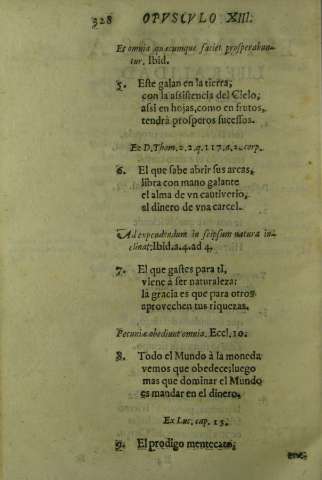 328 OPVSCVLO XIII.
Et omnia quæcumque faciet prosperabun-
tur. Ibid.
5. Este galan en la tierra,
con la assistencia del Cielo,
assi en hojas, como en frutos,
tendrà prosperos sucessos.
Ex D. Thom. 2. 2. q. 117. a. 2. corp.
6. El que sabe abrir sus arcas,
libra con mano galante
el alma de vn cautiverio,
al dinero de vna carcel.
Ad expendendum in seipsum natura in-
clinat; Ibid. a. 4. ad 4.
7. El que gastes para tì,
viene à ser naturaleza:
la gracia es que para otros
aprovechen tus riquezas.
Pecuniæ obediunt omnia. Eccl. 10.
8. Todo el Mundo à la moneda
vemos que obedece; luego
mas que dominar el Mundo
es mandar en el dinero.
Ex Luc. cap. 15.
9. El prodigo mentecato,